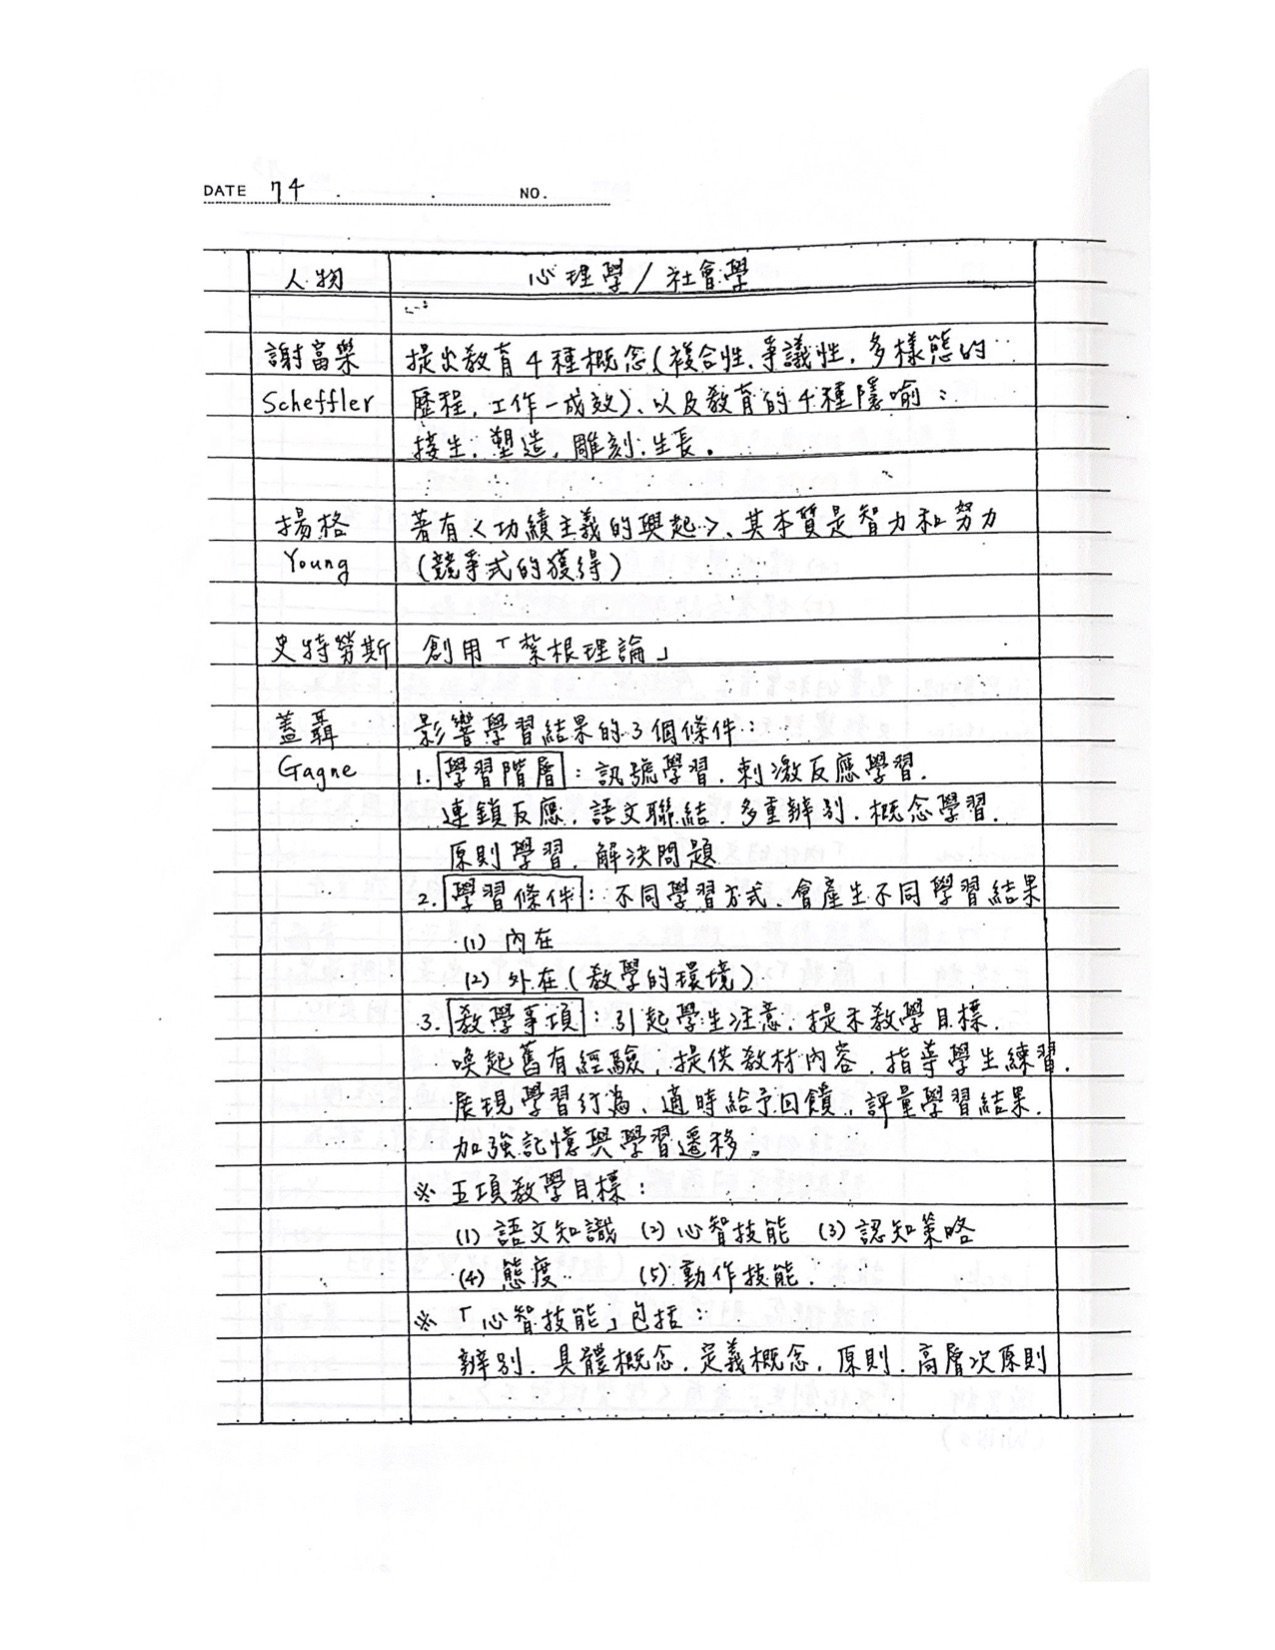 DATE 74 . . NO.
人物 心理學/社會學
謝富樂 提出教育4種概念(複合性、爭議性、多樣態的
Scheffler 歷程、工作-成效)、以及教育的4種隱喻:
接生、塑造、雕刻、生長。
揚格 著有<功績主義的興起>、其本質是智力和努力
Young (競爭式的獲得)
史特勞斯 創用「紮根理論」
蓋聶 影響學習結果的3個條件:
Gagne 1. 學習階層:訊號學習、刺激反應學習、
連鎖反應、語文聯結、多重辨別、概念學習、
原則學習、解決問題
2. 學習條件:不同學習方式、會產生不同學習結果
(1) 內在
(2) 外在(教學的環境)
3. 教學事項:引起學生注意、提示教學目標、
喚起舊有經驗、提供教材內容、指導學生練習、
展現學習行為、適時給予回饋、評量學習結果、
加強記憶與學習遷移。
※ 五項教學目標:
(1) 語文知識 (2) 心智技能 (3) 認知策略
(4) 態度 (5) 動作技能.
※ 「心智技能」包括:
辨別、具體概念、定義概念、原則、高層次原則